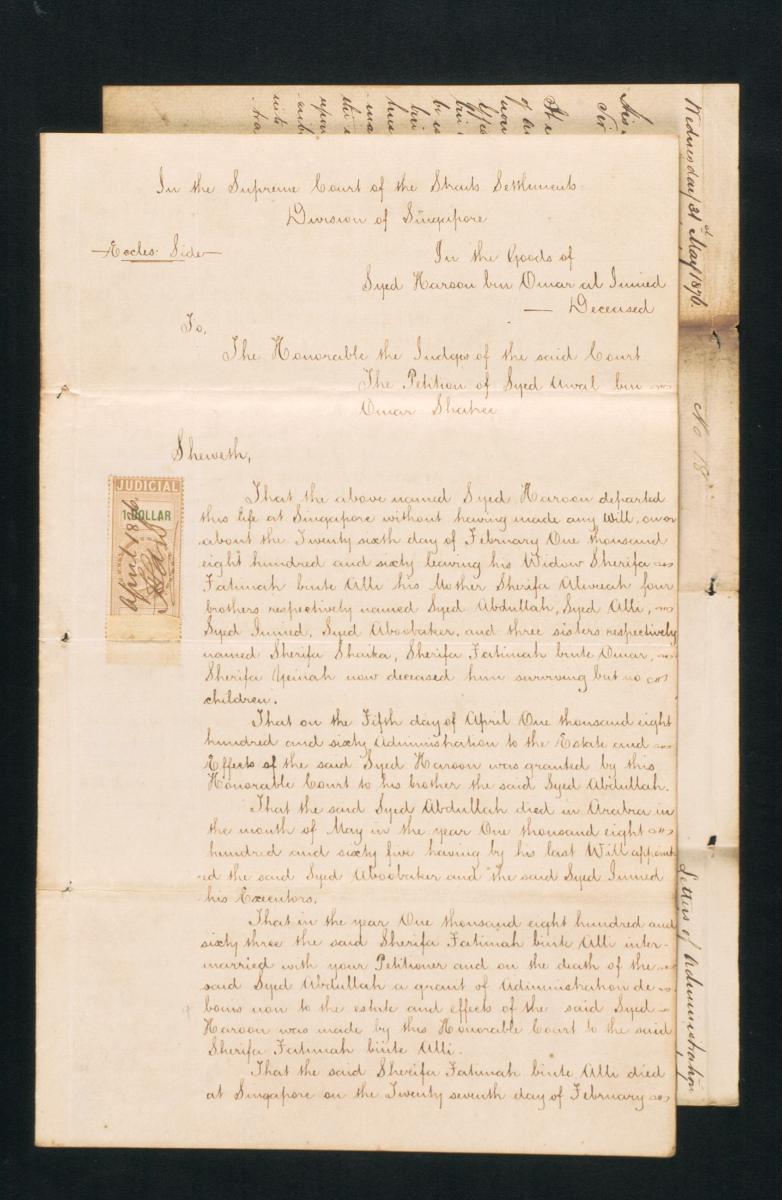 In the Supreme Court of the Straits Settlements
Division of Singapore
Eccles: Side
In the Goods of
Syed Haroon bin Omar al Junied
Deceased
To,
The Honorable the Judges of the said Court
The Petition of Syed Awal bin
Omar Shatree
Sheweth,
That the above named Syed Haroon departed
this life at Singapore without having made any Will, on or
about the Twenty sixth day of February One thousand
eight hundred and sixty leaving his Widow Sherifa
Fatimah binte Alli his Mother Sherifa Alweeah four
brothers respectively named Syed Abdullah, Syed Alli,
Syed Junied, Syed Aboobaker, and three sisters respectively
named Sherifa Shaika, Sherifa Fatimah binte Omar,
Sherifa Yeinah now deceased him surviving but no
children.
That on the Fifth day of April One thousand eight
hundred and sixty Administration to the Estate and
Effects of the said Syed Haroon was granted by this
Honorable Court to his brother the said Syed Abdullah.
That the said Syed Abdullah died in Arabia in
the month of May in the year One thousand eight
hundred and sixty five having by his last Will appoint
ed the said Syed Aboobaker and the said Syed Junied
his Executors.
That in the year One thousand eight hundred and
sixty three the said Sherifa Fatimah binte Alli inter-
married with your Petitioner and on the death of the
said Syed Abdullah a grant of Administration de
bonis non to the estate and effects of the said Syed
Haroon was made by this Honorable Court to the said
Sherifa Fatimah binte Alli.
That the said Sherifa Fatimah binte Alli died
at Singapore on the Twenty seventh day of February
JUDICIAL
1 DOLLAR
Wednesday 31st May 1876.
No 18
Letters of Administration